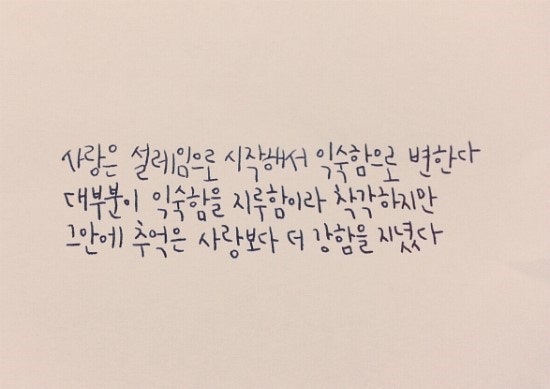 사랑은 설레임으로 시작해서 익숙함으로 변한다
대부분이 익숙함을 지루함이라 착각하지만
그안에 추억은 사랑보다 더 강함을 지녔다